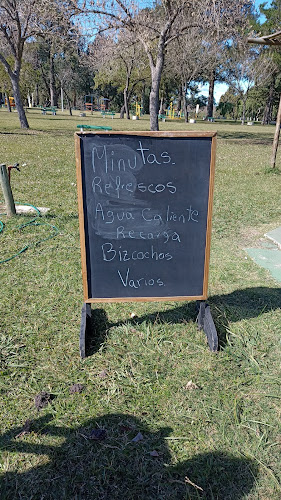 Minutas.
Refrescos
Agua Caliente
Recarga
Bizcochos
Varios